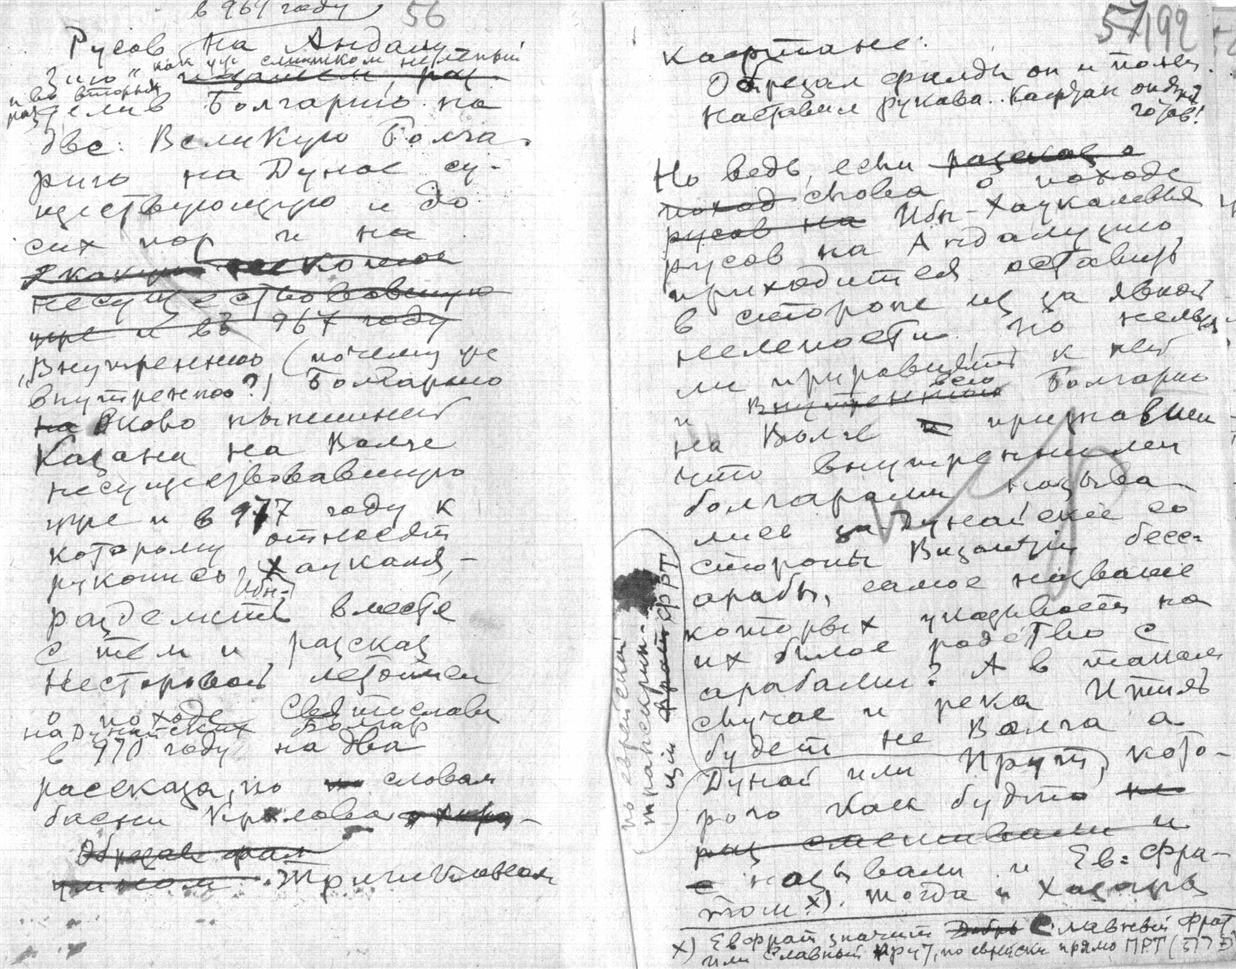 в 969 году
56
Русов на Андалу
зию" как уж слишком нелепый
и во вторых
разделив Болгарию на
две: Великую Болга
рию на Дунае су-
ществующую и до
сих пор и на
несуществовавшую
уже и въ 967 году
"Внутреннюю (почему же
внутреннюю?) Болгарию
на около нынешней
Казани на Волге
несуществовавшую
уже и в 977 году к
которому относят
рукопись Хаукаля,-
Ибн-
разделить вместе
с тем и рассказ
Несторовой летописи
о походе Святослава
на Дунайских Болгар
в 970 году на два
рассказа, по словам
басни Крылова
Обрезав фал
Тришкином
57
192
кафтане:
Обрезал фалды он и полы
Наставил рукава. Кафтан опять
готов!
Но ведь, если рассказ о
поход слова о походе
русов на Ибн-Хаукалевых
русов на Андалузию
приходится оставить
в стороне из за явной
нелепости, то нельзя
ли приравнять к ней
всю
и Внутреннюю Болгарию
на Волге и признавши
что внутренними
болгарами называ-
лись за Дунайские со
стороны Византии бесс-
арабы, самое название
которых указывает на
их былое родство с
арабами? А в таком
случае и река Итиль
будет не Волга а
Дунай или Прут, кото-
рого как будто не
раз смешивали и
с называли и Ев-Фра-
том x). Тогда и Хазары
по еврейски
транскрип-
ции Фрат ФРТ
x) Евфрат значит Добр Славный Фрат
или Славный Прут, по еврейски прямо ПРТ